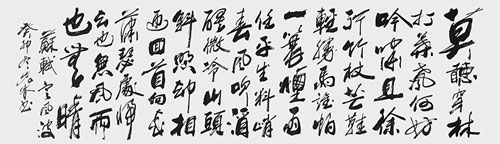 莫聽穿林
打葉聲何妨
吟嘯且徐
行竹杖芒鞋
輕勝馬誰怕
一蓑煙雨
任平生料峭
春風吹酒
醒微冷山頭
斜照卻相
迎回首向來
蕭瑟處歸
去也無風雨
也無晴
蘇軾定風波
癸卯